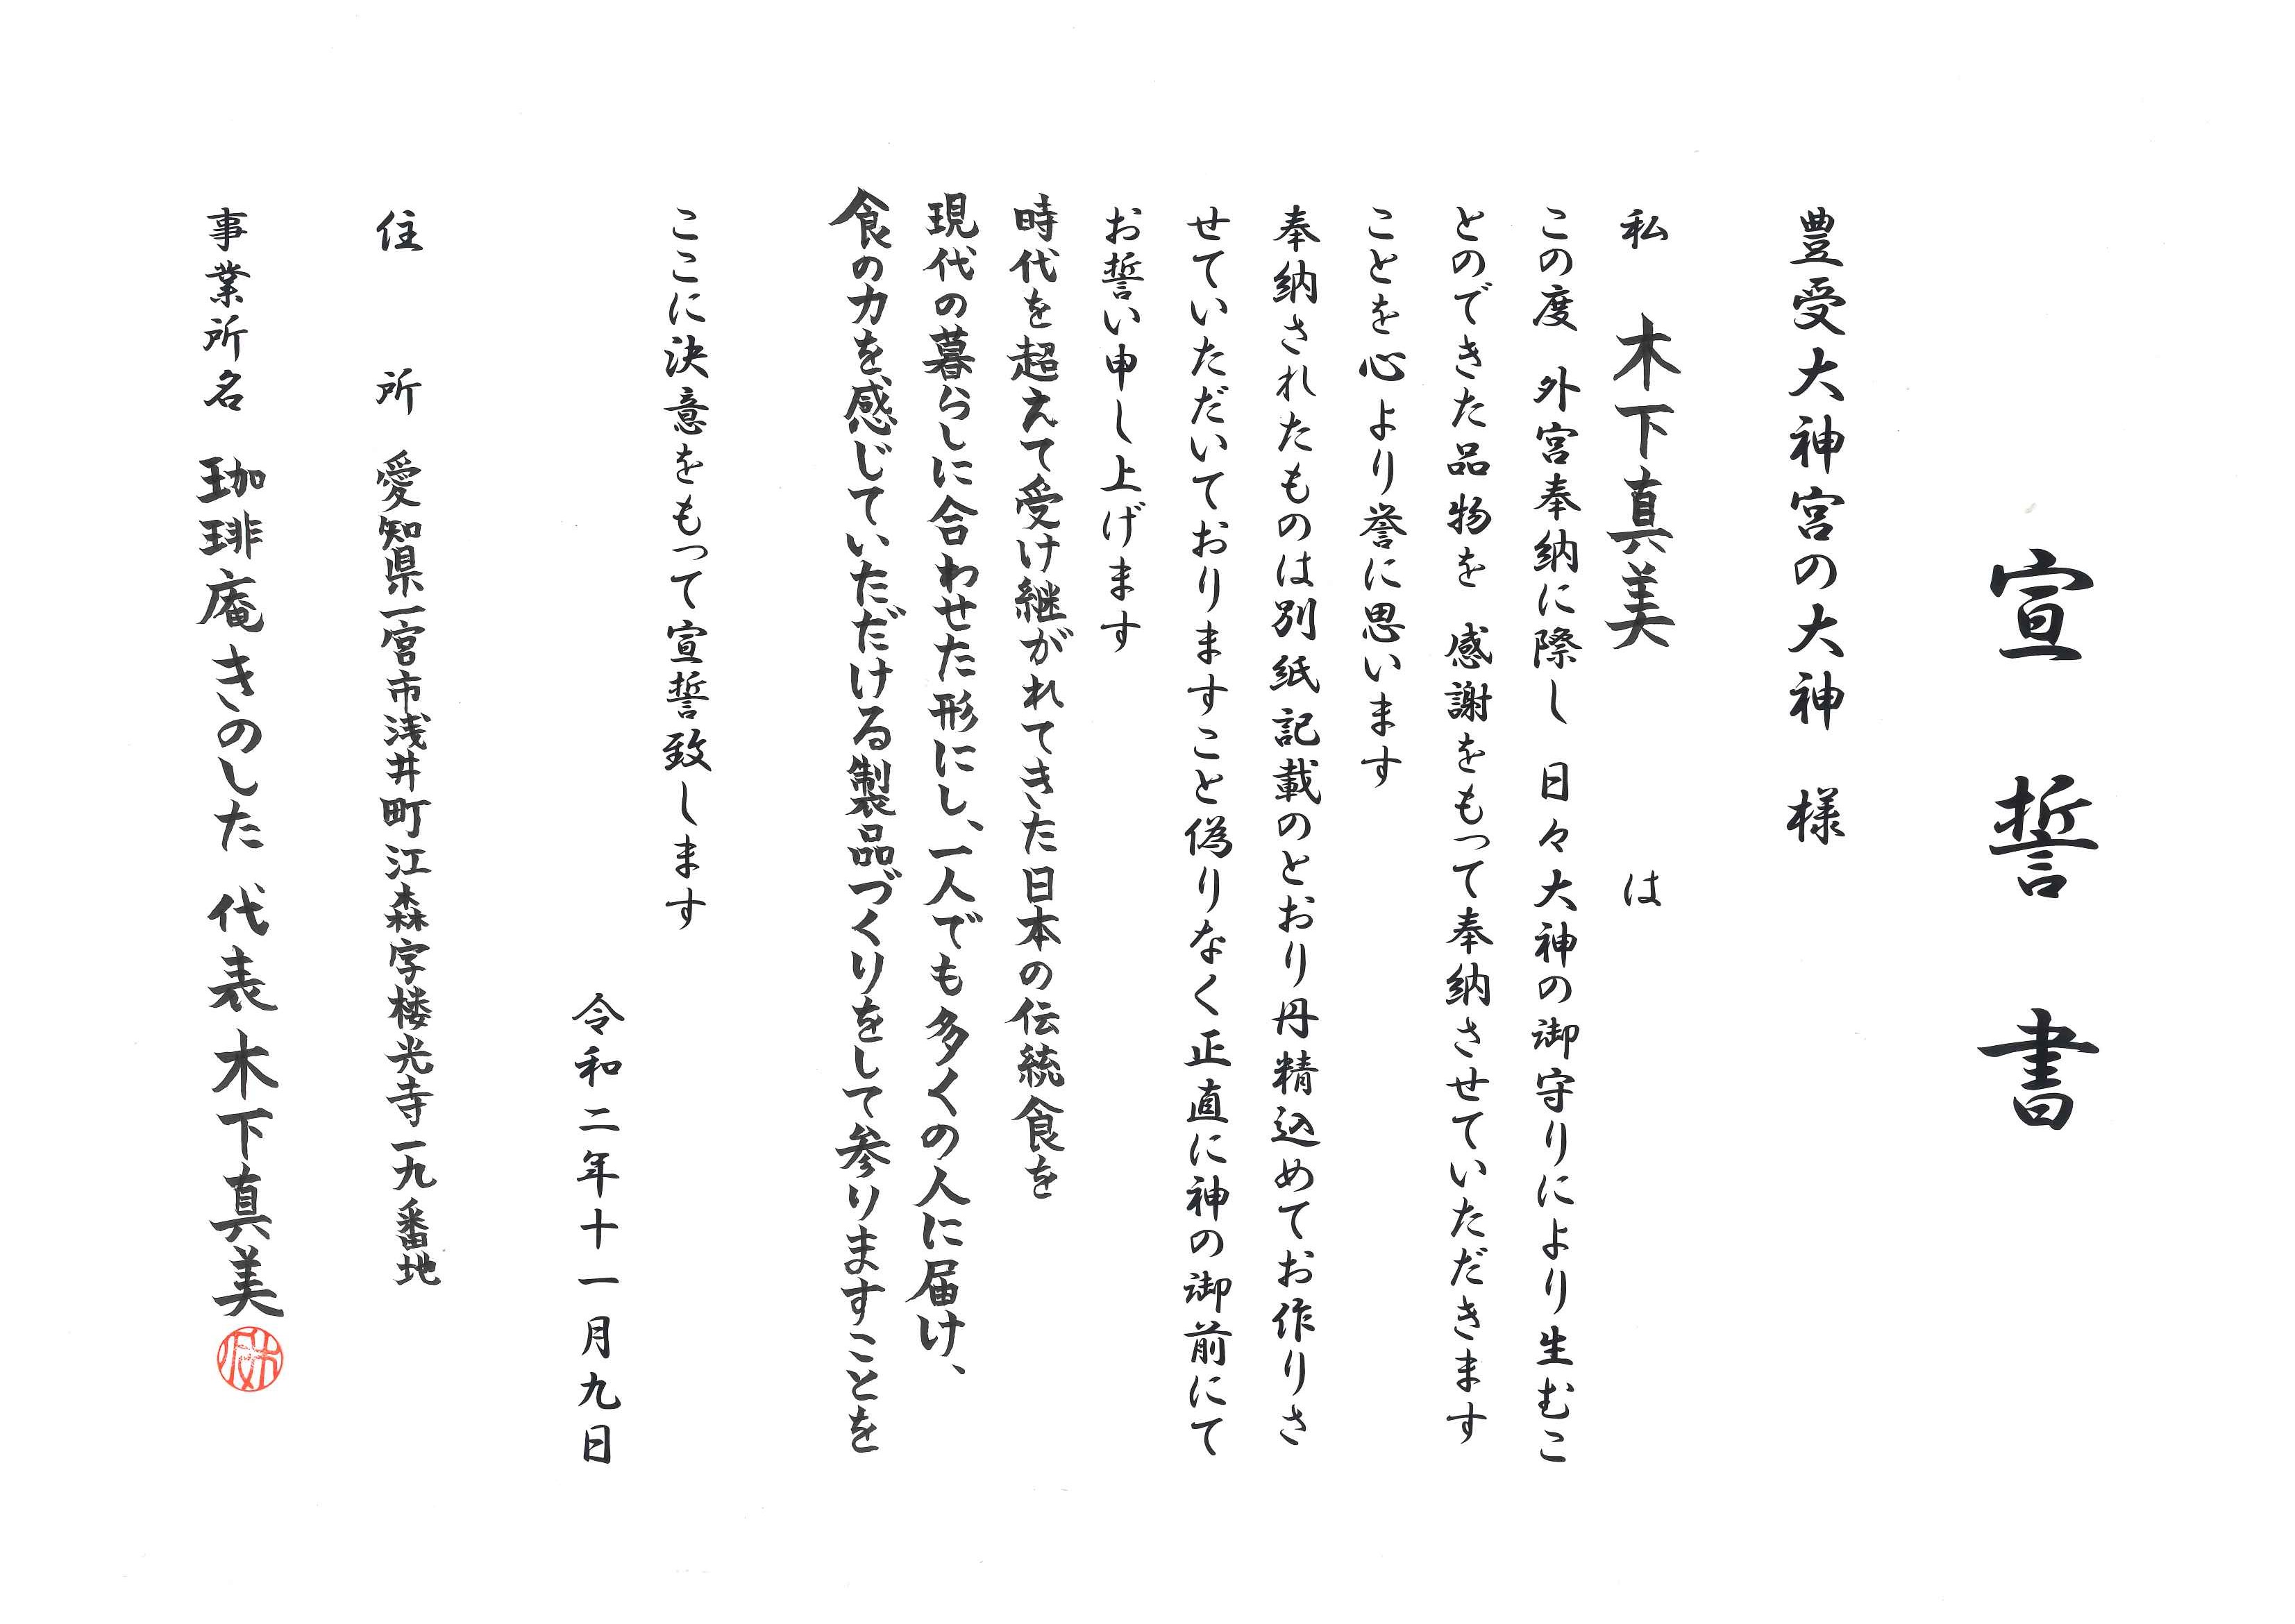 宣誓書
豊受大神宮の大神 様
私 木下真美 は
この度 外宮奉納に際し 日々大神の御守りにより生むこ
とのできた品物を 感謝をもって奉納させていただきます
ことを心より誉に思います
奉納されたものは別紙記載のとおり丹精込めてお作りさ
せていただいておりますこと偽りなく正直に神の御前にて
お誓い申し上げます
時代を超えて受け継がれてきた日本の伝統食を
現代の暮らしに合わせた形にし、一人でも多くの人に届け、
食の力を、感じていただける製品づくりをして参りますことを
ここに決意をもって宣誓致します
令和二年十一月九日
住所 愛知県一宮市浅井町江森字楼光寺一九番地
事業所名 珈琲庵きのした 代表 木下真美